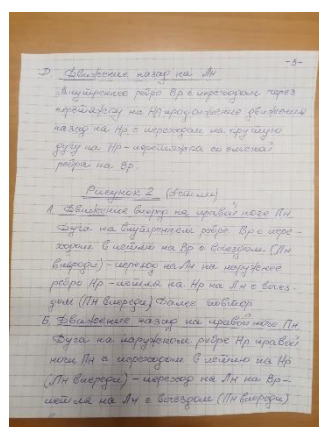 -3-
D. Движение назад на Лн
Внутреннее ребро Вр с переходом через
перетяжку на Нр продолжение движения
назад на Нр с переходом на крутую
дугу на Нр - перетяжка со сменой
ребра на Вр.
Рисунок 2 (Петли)
А. Движение вперед на правой ноге Пн.
Дуга на внутреннем ребре Вр с пере-
ходом в петлю на Вр с выездом (Лн
впереди) - переход на Лн на наружное
ребро Нр - петля на Нр на Лн с выез-
дом (Пн впереди) Далее повтор
Б. Движение назад на правой ноге Пн.
Дуга на наружном ребре Нр правой
ноги Пн с переходом в петлю на Нр
(Лн впереди) - переход на Лн на Вр -
петля на Лн с выездом (Пн впереди)